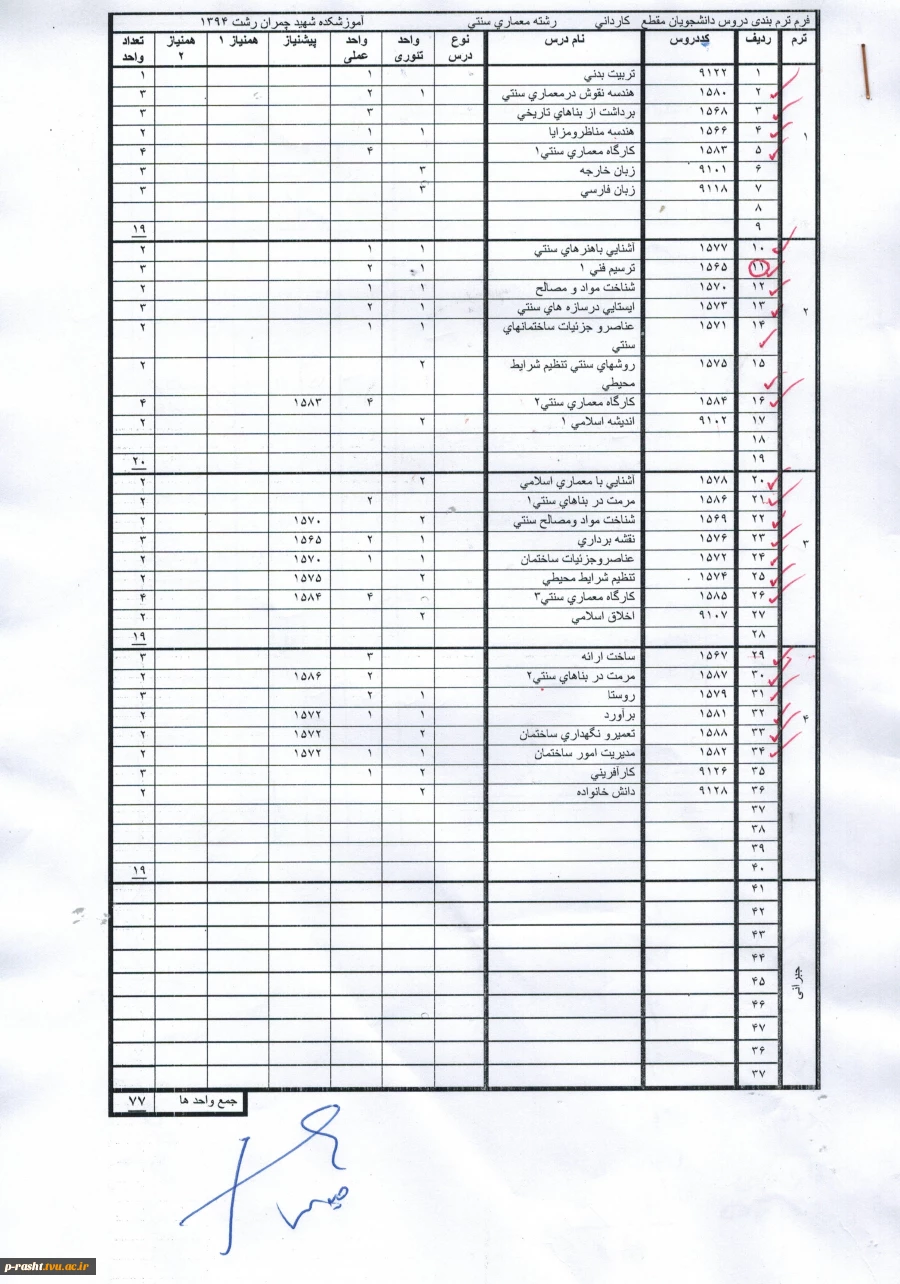 فرم ترم بندی دروس دانشجویان مقطع کارداني رشته معماري سنتي آموزشکده شهید چمران رشت ۱۳۹۴
ترم ردیف کددروس نام درس نوع درس واحد تئوری واحد عملی پیشنیاز همنیاز ۱ همنیاز ۲ تعداد واحد
۱
۱ ۹۱۲۲ تربیت بدني ۱ ۱
۲ ۱۵۸۰ هندسه نقوش درمعماري سنتي ۱ ۲ ۳
۳ ۱۵۶۸ برداشت از بناهاي تاریخي ۳ ۳
۴ ۱۵۶۶ هندسه مناظرومزایا ۱ ۱ ۲
۵ ۱۵۸۳ کارگاه معماري سنتي۱ ۴ ۴
۶ ۹۱۰۱ زبان خارجه ۳ ۳
۷ ۹۱۱۸ زبان فارسي ۳ ۳
۸
۹ ۱۹
۲
۱۰ ۱۵۷۷ آشنایي باهنرهاي سنتي ۱ ۱ ۲
۱۱ ۱۵۶۵ ترسیم فني ۱ ۱ ۲ ۳
۱۲ ۱۵۷۰ شناخت مواد و مصالح ۱ ۱ ۲
۱۳ ۱۵۷۳ ایستایي درسازه هاي سنتي ۱ ۲ ۳
۱۴ ۱۵۷۱ عناصرو جزئیات ساختمانهاي سنتي ۱ ۱ ۲
۱۵ ۱۵۷۵ روشهاي سنتي تنظیم شرایط محیطي ۲ ۲
۱۶ ۱۵۸۴ کارگاه معماري سنتي۲ ۴ ۱۵۸۳ ۴
۱۷ ۹۱۰۲ اندیشه اسلامي ۱ ۲ ۲
۱۸
۱۹ ۲۰
۳
۲۰ ۱۵۷۸ آشنایي با معماري اسلامي ۲ ۲
۲۱ ۱۵۸۶ مرمت در بناهاي سنتي۱ ۲ ۲
۲۲ ۱۵۶۹ شناخت مواد ومصالح سنتي ۲ ۱۵۷۰ ۲
۲۳ ۱۵۷۶ نقشه برداري ۱ ۲ ۱۵۶۵ ۳
۲۴ ۱۵۷۲ عناصروجزئیات ساختمان ۱ ۱ ۱۵۷۰ ۲
۲۵ ۱۵۷۴ تنظیم شرایط محیطي ۲ ۱۵۷۵ ۲
۲۶ ۱۵۸۵ کارگاه معماري سنتي۳ ۴ ۱۵۸۴ ۴
۲۷ ۹۱۰۷ اخلاق اسلامي ۲ ۲
۲۸ ۱۹
۴
۲۹ ۱۵۶۷ ساخت ارائه ۳ ۳
۳۰ ۱۵۸۷ مرمت در بناهاي سنتي۲ ۲ ۱۵۸۶ ۲
۳۱ ۱۵۷۹ روستا ۱ ۲ ۳
۳۲ ۱۵۸۱ برآورد ۱ ۱ ۱۵۷۲ ۲
۳۳ ۱۵۸۸ تعمیرو نگهداري ساختمان ۲ ۱۵۷۲ ۲
۳۴ ۱۵۸۲ مدیریت امور ساختمان ۱ ۱ ۱۵۷۲ ۲
۳۵ ۹۱۲۶ کارآفریني ۲ ۱ ۳
۳۶ ۹۱۲۸ دانش خانواده ۲ ۲
۳۷
۳۸
۳۹
۴۰ ۱۹
جبرانی
۴۱
۴۲
۴۳
۴۴
۴۵
۴۶
۴۷
۳۶
۳۷
جمع واحد ها ۷۷
p-rasht.tvu.ac.ir